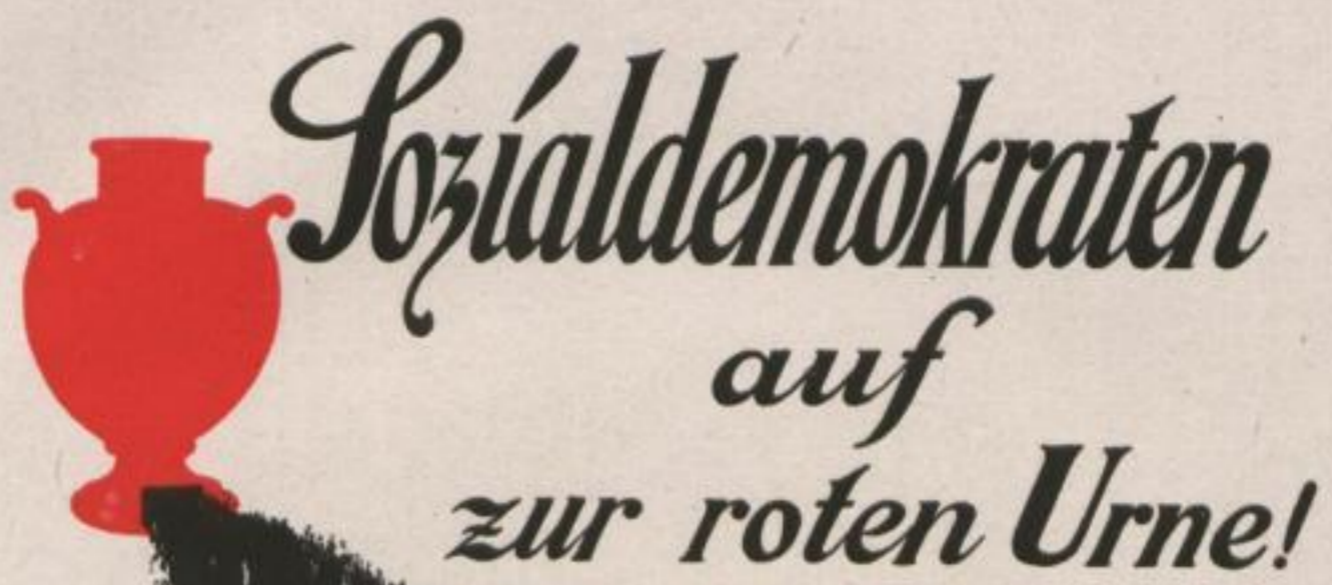 Sozialdemokraten
auf
zur roten Urne!